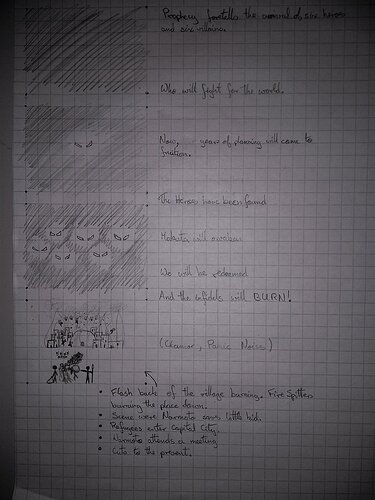 Prophecy foretells the arrival of six heroes
and six villains.
Who will fight for the world.
Now, years of planning will come to
fruition.
The Heroes have been found
will awaken
We will be redeemed
And the infidels will BURN!
(Clamor, Panic Noises)
• Flash back of the village burning. Fire Spitters
burning the place down.
• Scene were Narmoto saves little kid.
• Refugees enter Capital City.
• Narmoto attends a meeting
• Cuts to the present.